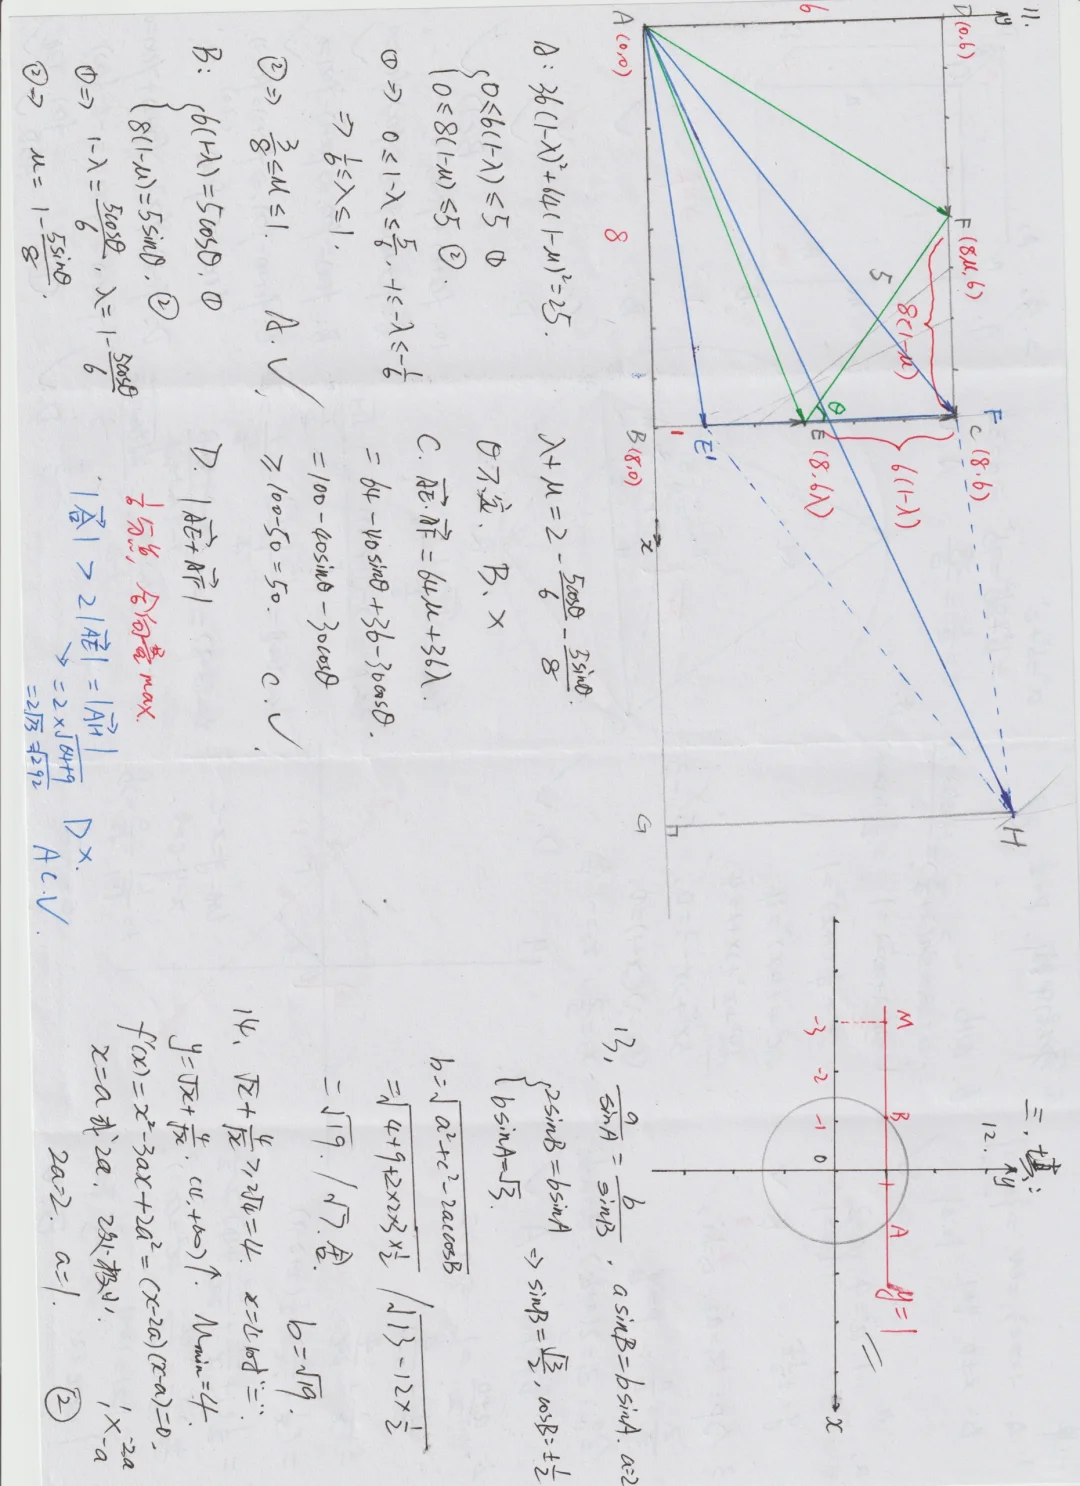 11.
y
D(0,6)
F(8μ,6)
F
C(8,6)
H
6
8(1-μ)
5
θ
6(1-λ)
E(8,6λ)
E'
1
A(0,0)
8
B(8,0)
x
G
A: 36(1-λ)²+64(1-μ)²=25.
{0≤6(1-λ)≤5 ①
0≤8(1-μ)≤5 ②.
①⇒ 0≤1-λ≤5/6, -1≤-λ≤-1/6
⇒ 1/6≤λ≤1.
②⇒ 3/8≤μ≤1. A.√
B: {6(1-λ)=5cosθ. ①
8(1-μ)=5sinθ. ②
①⇒ 1-λ=5cosθ/6, λ=1-5cosθ/6
②⇒ μ=1-5sinθ/8.
λ+μ=2-5cosθ/6-5sinθ/8.
θ不定. B.×
C. AE·AF=64μ+36λ.
=64-40sinθ+36-30cosθ.
=100-40sinθ-30cosθ
≥100-50=50. C.√.
D. |AE+AF|
max.
>2|AE'|=|AH|
=2×√64+9
=2√73=√292
D×.
AC.√.
三.填:
12.
y
M
B
A
y=1
-3
-2
-1
0
x
13, a/sinA=b/sinB, asinB=bsinA. a=2
{2sinB=bsinA
bsinA=√3. ⇒ sinB=√3/2, cosB=±1/2
b=√a²+c²-2accosB
=√4+9+2×2×3×1/2 /√13-12×1/2
=√19. /√7.舍. b=√19.
14、√x+4/√x≥2√4=4. x=4时"=".
y=√x+4/√x, (4,+∞)↑. min=4.
f'(x)=x²-3ax+2a²=(x-2a)(x-a)=0.
x=a或2a. 2a极小. 1 -2a
1 × -a
2a=2. a=1. ②